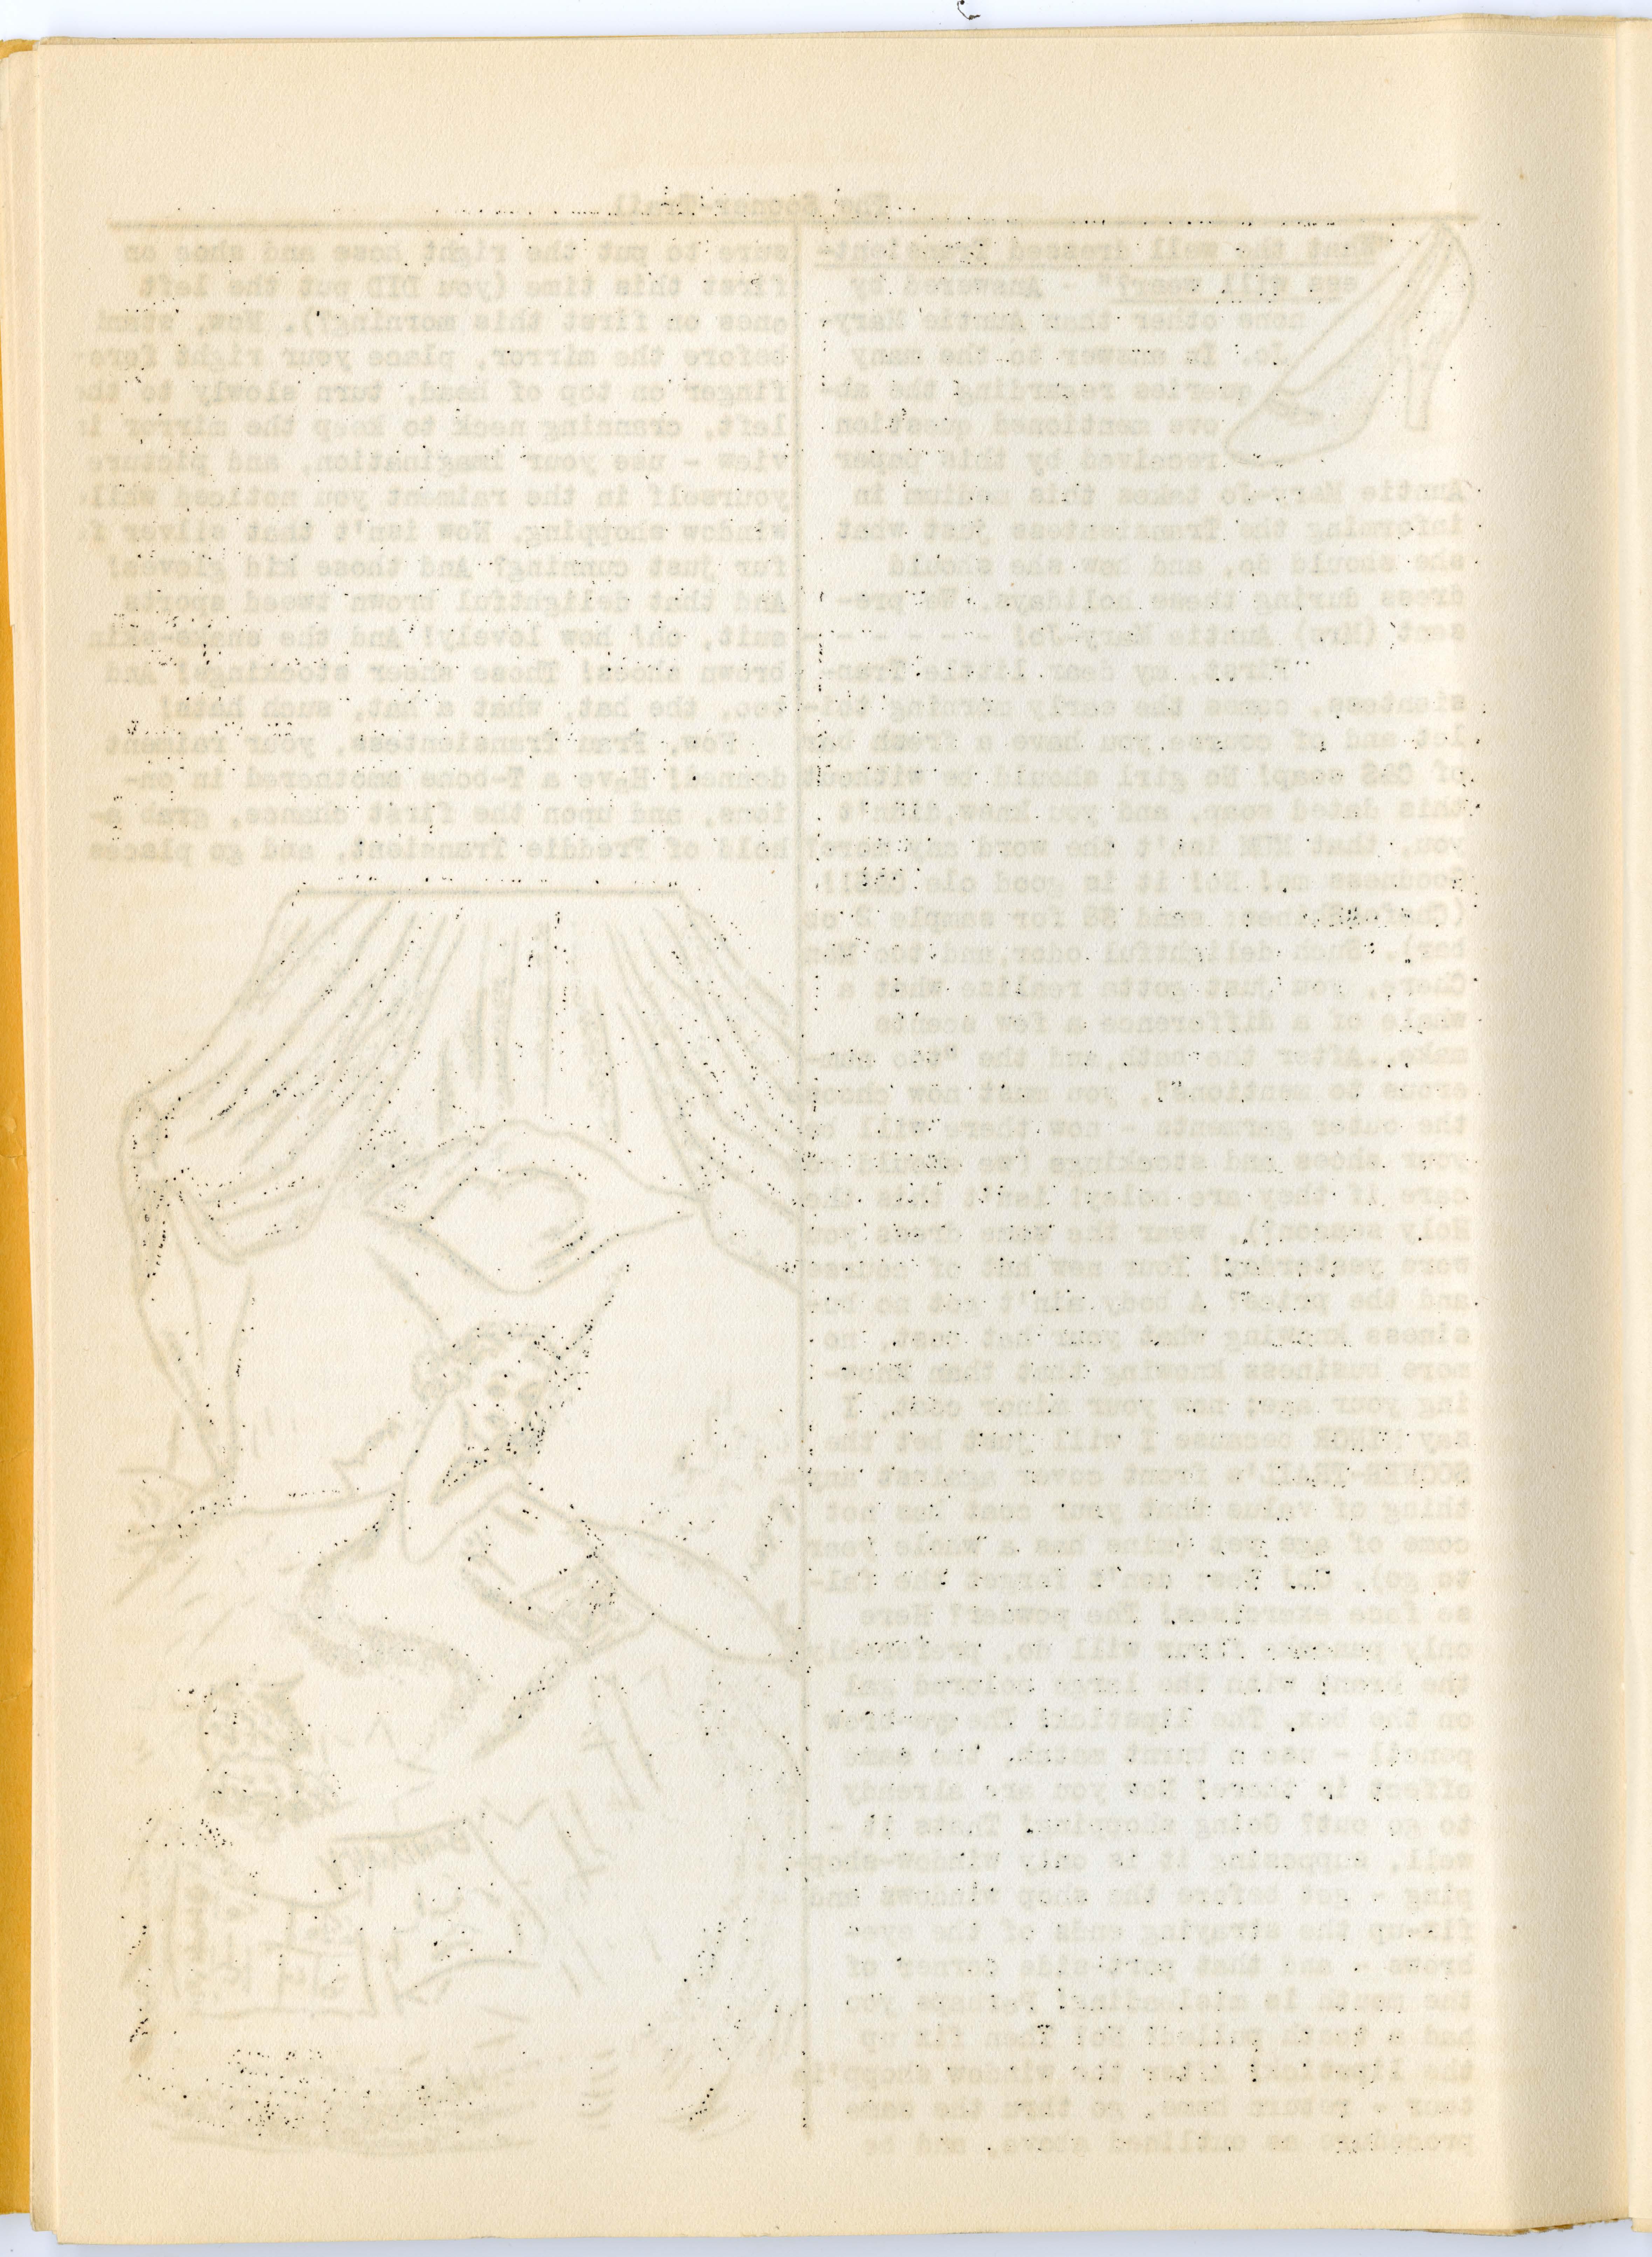 The Sooner-Trail
"What the well dressed Transient-
ess will wear?" - Answered by
none other than Auntie Mary-
Jo. In answer to the many
queries regarding the ab-
ove mentioned question
received by this paper
Auntie Mary-Jo takes this medium in
informing the Transientess just what
she should do, and how she should
dress during these holidays. We pre-
sent (Mrs) Auntie Mary-Jo! - - - - - -
First, my dear little Tran-
sientess, comes the early morning toi-
let and of course you have a fresh bar
of C&S soap! No girl should be without
this dated soap, and you knew, didn't
you, that MUM isn't the word any more?
Goodness me! No! it is good ole
send for sample
bar). Such delightful odor, and too
you just gotta realize what a
whale of a difference a few scents
make. After the bath, and the
erous to mention", you must now choose
the outer garments - now there will be
your shoes and stockings (we should not
care if they are holey! Isn't this the
Holy season?), wear the same dress you
wore yesterday! Your new hat of course
and the price? A body ain't got no bu-
siness knowing what your hat cost, no
more business knowing that than know-
ing your age; now your minor coat, I
say MINOR because I will just bet the
SOONER-TRAIL's front cover against any-
thing of value that your coat has not
come of age yet (mine has a whole year
to go). Oh! Dear don't forget the
face exercises! The powder? Here
only flour will do, preferably
the brand with the large colored gal
on the box. The lipstick? The
pencil - use a burnt match, the same
effect is there! Now you are already
to go out? Going shopping! Thats it -
well, supposing it is only window-shop-
ping - get before the shop windows and
fix-up the straying ends of the eye-
brows - and that port-side corner of
the mouth is misleading! Perhaps you
had a tooth pulled? No? Then fix up
the lipstick! After the window shopp'in
tour - return home, go thru the same
procedure as outlined above, and be
sure to put the right hose and shoe on
first this time (you DID put the left
ones on first this morning?). Now, stand
before the mirror, place your right fore-
finger on top of head, turn slowly to the
left, cranning neck to keep the mirror in
view - use your imagination, and picture
yourself in the raiment you noticed while
window shopping. Now isn't that silver fox
fur just cunning? And those kid gloves!
And that delightful brown tweed sports
suit, oh! how lovely! And the snake-skin
brown shoes! Those sheer stockings! And
too, the hat, what a hat, such hats!
Now, Frau Transientess, your raiment
donned! Have a T-bone smothered in on-
ions, and upon the first chance, grab a-
hold of Freddie Transient, and go places